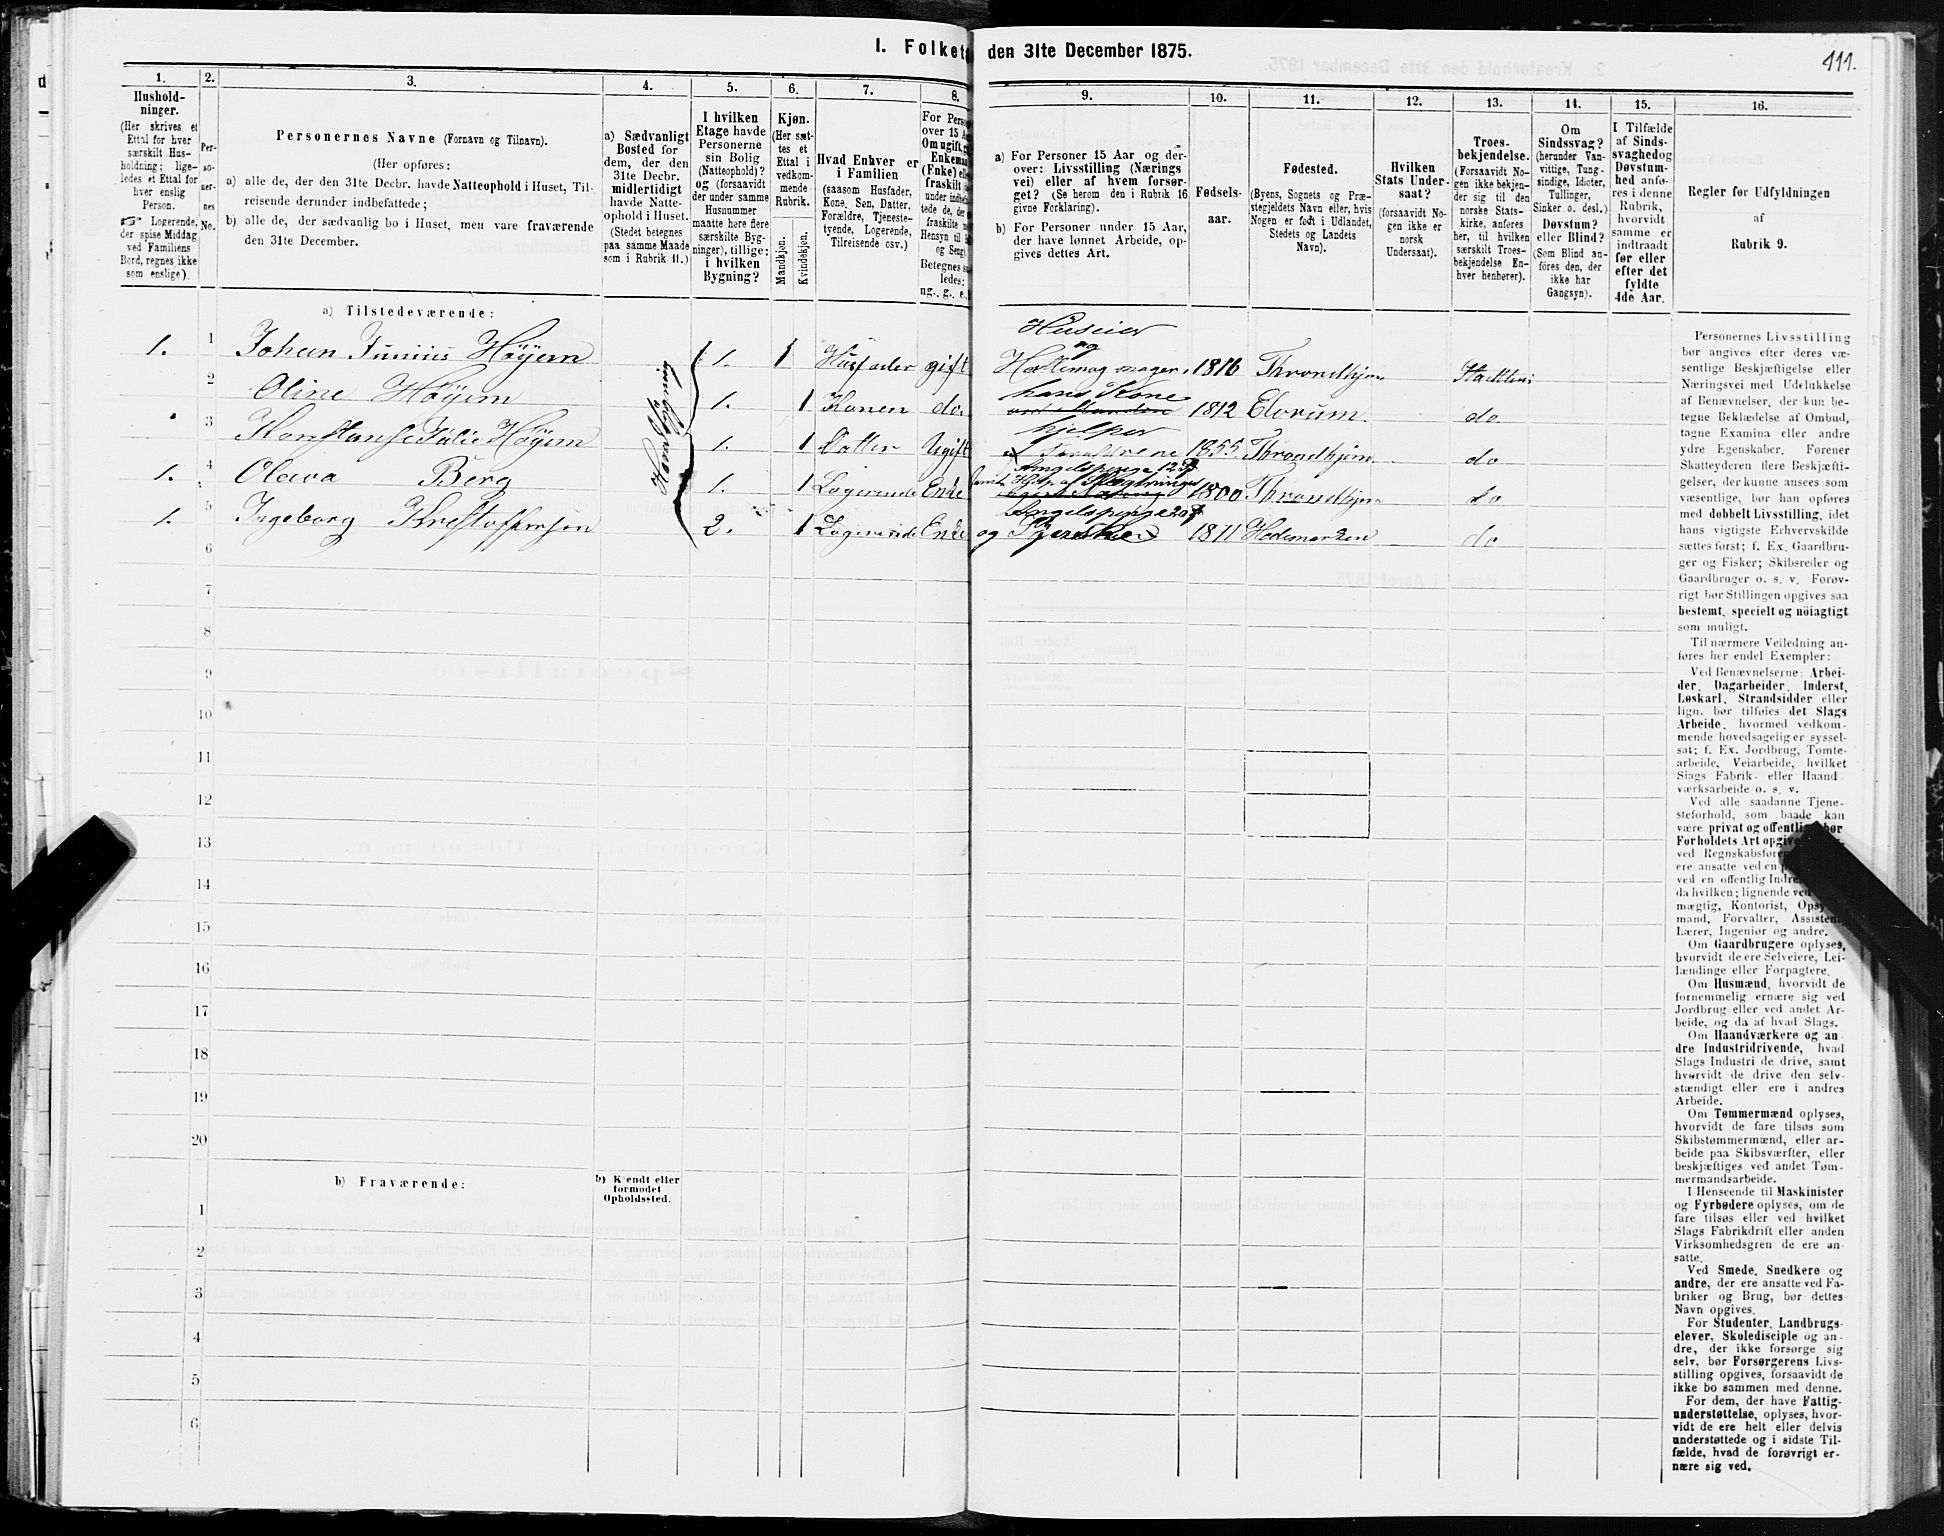 d
I. Folket
den 31te December 1875.
111.
1.
2.
3.
4.
5.
6.
7.
8.
9.
10.
11.
12.
13.
14.
15.
16.
Hushold-
ninger.
(Her skrives et
Ettal for hver
særskilt Hus-
holdning; lige-
ledes et Ettal for
hver enslig
Person.
☞ Logerende,
der spise Middag
ved Familiens
Bord, regnes ikke
som enslige).
Per-
so-
ner-
nes
No.
Personernes Navne (Fornavn og Tilnavn).
(Her opføres:
a) alle de, der den 31te Decbr. havde Natteophold i Huset, Til-
reisende derunder indbefattede;
b) alle de, der sædvanlig bo i Huset, men vare fraværende
den 31te December.
a) Sædvanligt
Bosted for
dem, der den
31te Decbr.
midlertidigt
havde Natte-
ophold i Huset.
(Stedet betegnes
paa samme Maade
som i Rubrik 11.)
I hvilken
Etage havde
Personerne
sin Bolig
(Natteophold)?
og (forsaavidt
der under samme
Husnummer
maatte høre flere
særskilte Byg-
ninger), tillige:
i hvilken
Bygning?
Kjøn.
(Her sæt-
tes et
Ettal i
vedkom-
mende
Rubrik.
Mandkjøn.
Kvindekjøn.
Hvad Enhver er
i Familien
(saasom Husfader,
Kone, Søn, Datter,
Forældre, Tjeneste-
tyende, Logerende,
Tilreisende osv.)
For Perso
over 15 A
Om ugift, g
Enkema
(Enke) ell
fraskilt
under indbe
tede de, der
fraskilte
Hensyn til
og Seng)
Betegnes s
ledes:
ug., g., e.,
a) For Personer 15 Aar og der-
over: Livsstilling (Nærings
vei) eller af hvem forsør-
get? (Se herom den i Rubrik 16
givne Forklaring).
b) For Personer under 15 Aar,
der have lønnet Arbeide, op-
gives dettes Art.
Fødsels-
aar.
Fødested.
(Byens, Sognets og Præ-
stegjeldets Navn eller, hvis
Nogen er født i Udlandet,
Stedets og Landets
Navn).
Hvilken
Stats Under-
saat?
(forsaavidt No-
gen ikke er
norsk
Undersaat).
Troes-
bekjendelse.
(Forsaavidt No-
gen ikke bekjen-
der sig til den
norske Stats-
kirke, anføres
her, til hvilken
særskilt Troes-
bekjendelse En-
hver henhører).
Om
Sindssvag?
(herunder Van-
vittige, Tung-
sindige, Idioter,
Tullinger,
Sinker o. desl.)
Døvstum?
eller Blind?
(Som Blind an-
føres den, der
ikke har
Gangsyn).
I Tilfælde
af Sinds-
svaghed og
Døvstum-
hed anfø-
res i denne
Rubrik,
hvorvidt
samme er
indtraadt
før eller
efter det
fyldte
4de Aar.
Regler for Udfyldningen
af
Rubrik 9.
a) Tilstedeværende:
1. 1 Johan Junius Høyem 1. 1 Husfader gift Huseier
og
Hattemager 1816 Throndhjem
2 Oline Høyem 1. 1 Konen do. hans Kone 1812 Elverum do
3 Konstanse Julie Høyem 1. 1 Datter Ugift hjelper
Forældrene 1855 Throndhjem do
1. 4 Oleva Berg 1. 1 Logerende Enke 1800 Throndhjem do
1. 5 Ingeborg Kristoffersen 2. 1 Logerende Enke og 1811 Hedemarken do
6
7
8
9
10
11
12
13
14
15
16
17
18
19
20
b) Fraværende:
b) Kjendt eller
formodet
Opholdssted.
1
2
3
4
5
6
Personernes Livsstilling
bør angives efter deres væ-
sentlige Beskjæftigelse eller
Næringsvei med Udelukkelse
af Benævnelser, der kun be-
tegne Beklædelse af Ombud,
tagne Examina eller andre
ydre Egenskaber. Forener
Skatteyderen flere Beskjæfti-
gelser, der kunne ansees som
væsentlige, bør han opføres
med dobbelt Livsstilling, idet
hans vigtigste Erhvervskilde
sættes først; f. Ex. Gaardbru-
ger og Fisker; Skibsreder og
Gaardbruger o. s. v. Forøv-
rigt bør Stillingen opgives saa
bestemt, specielt og nøiagtigt
som muligt.
Til nærmere Veiledning an-
føres her endel Exempler:
Ved Benævnelserne: Arbei-
der, Dagarbeider, Inderst,
Løskarl, Strandsidder eller
lign. bør tilføies det Slags
Arbeide, hvormed vedkom-
mende hovedsagelig er syssel-
sat; f. Ex. Jordbrug, Tomte-
arbeide, Veiarbeide, hvilket
Slags Fabrik- eller Haand
værksarbeide o. s. v.
Ved alle saadanne Tjene-
steforhold, som baade kan
være privat og offentlig, bør
Forholdets Art opgive
ved Regnskabsfører
ere ansatte ved en
ved en offentlig Indre
da hvilken; lignende ved
mægtig, Kontorist, Opsy
mand, Forvalter, Assistent
Lærer, Ingeniør og andre.
Om Gaardbrugere oplyses,
hvorvidt de ere Selveiere, Lei-
lændinge eller Forpagtere.
Om Husmænd, hvorvidt de
fornemmelig ernære sig ved
Jordbrug eller ved andet Ar-
beide, og da af hvad Slags.
Om Haandværkere og an-
dre Industridrivende, hvad
Slags Industri de drive, samt
hvorvidt de drive den selv-
stændigt eller ere i andres
Arbeide.
Om Tømmermænd oplyses,
hvorvidt de fare tilsøs som
Skibstømmermænd, eller ar-
beide paa Skibsværfter, eller
beskjæftiges ved andet Tøm-
mermandsarbeide.
I Henseende til Maskinister
og Fyrbødere oplyses, om de
fare tilsøs eller ved hvilket
Slags Fabrikdrift eller anden
Virksomhedsgren de ere an-
satte.
Ved Smede, Snedkere og
andre, der ere ansatte ved Fa-
briker og Brug, bør dettes
Navn opgives.
For Studenter, Landbrugs-
elever, Skoledisciple og an-
dre, der ikke forsørge sig
selv, bør Forsørgerens Livs-
stilling opgives, forsaavidt de
ikke bo sammen med denne.
For dem, der have Fattig-
understøttelse, oplyses, hvor-
vidt de ere helt eller delvis
understøttede og i sidste Til-
fælde, hvad de forøvrigt er-
nære sig ved.